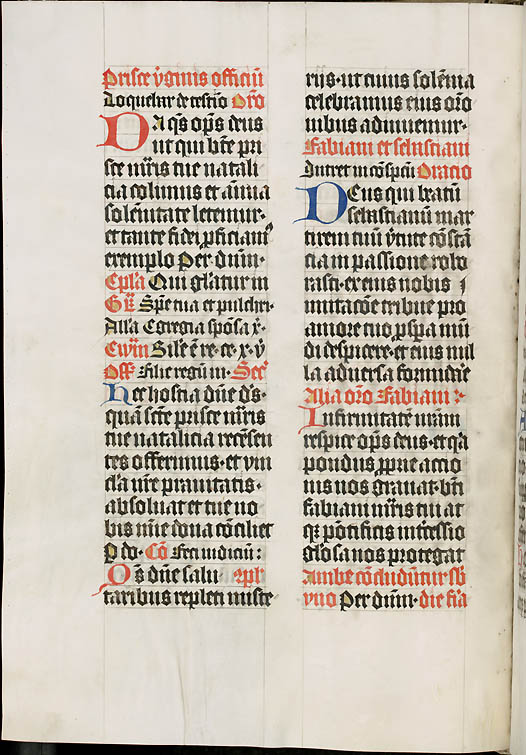 Prisce v̄gīnis officiū
Loquebar de testīo Or̄o
Da q̄s op̄s deus
ut qui bt̄e pri
sce m̄ris tue natali
cia colimus et ānua
solēnitate letemur·
et tante fidei ꝓficiam᷒
exemplo Per dūm·
Ep̄la Qui gl̄atur in
Gr̄ Spē tua et pulchri·
All̄a Egregia spōsa x̄·
Ew̄m Sil̄e ē re·ce·x·v̄
Off̄ Filie regū m̄· Secr̄
Hec hostia dn̄e q̄s·
quā sc̄te prisce m̄ris
tue natalicia recēsen
tes offerimus·et vin
cl̄a nr̄e prauitatis·
absoluat et tue no
bis mīe dona cōciliet
p do· Cō feci iudiciū:
Qs̄ dn̄e salu· 9pl̄
taribus repleti miste
rijs·ut cuius solēnia
celebramus eius or̄o
nibus adiuuemur·
Fabiani et sebastiani
Intret in cōspcū Oracio
Deus qui beatū
sebastianū mar
tirem tuū v̄tute cōstā
cia m passione robo
rasti·ex eius nobis i
mitacōe tribue pro
amore tuo ꝓspa mū
di despicere·et eius nul
la aduersa formidīe
Alia or̄o Fabiani:·
Infirmitatē nr̄am
respice op̄s deus·et qa
pondus ꝓprie actio
nis nos grauat·bt̄i
fabiani m̄ris tui at
qꝫ pōtificis int̄cessio
gl̄osa nos protegat
Ambe cōcludūtur sb̄
vno Per dūm· die fīa